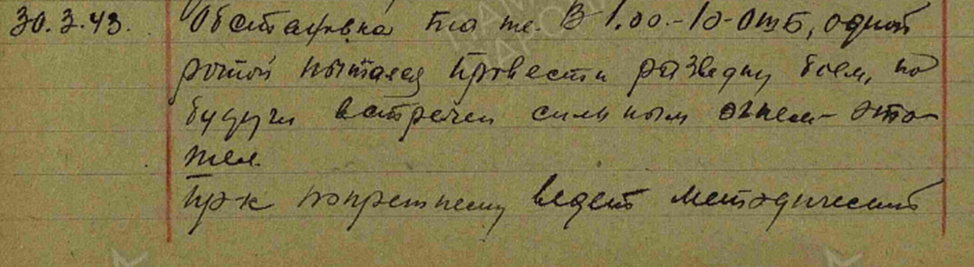 30.3.43. Обстановка та же. В 1.00.-10-ОШБ, одной
ротой пытался провести разведку боем, но
будучи встречен сильным огнем- ото-
шел.
Пр-к попрежнему ведет методический